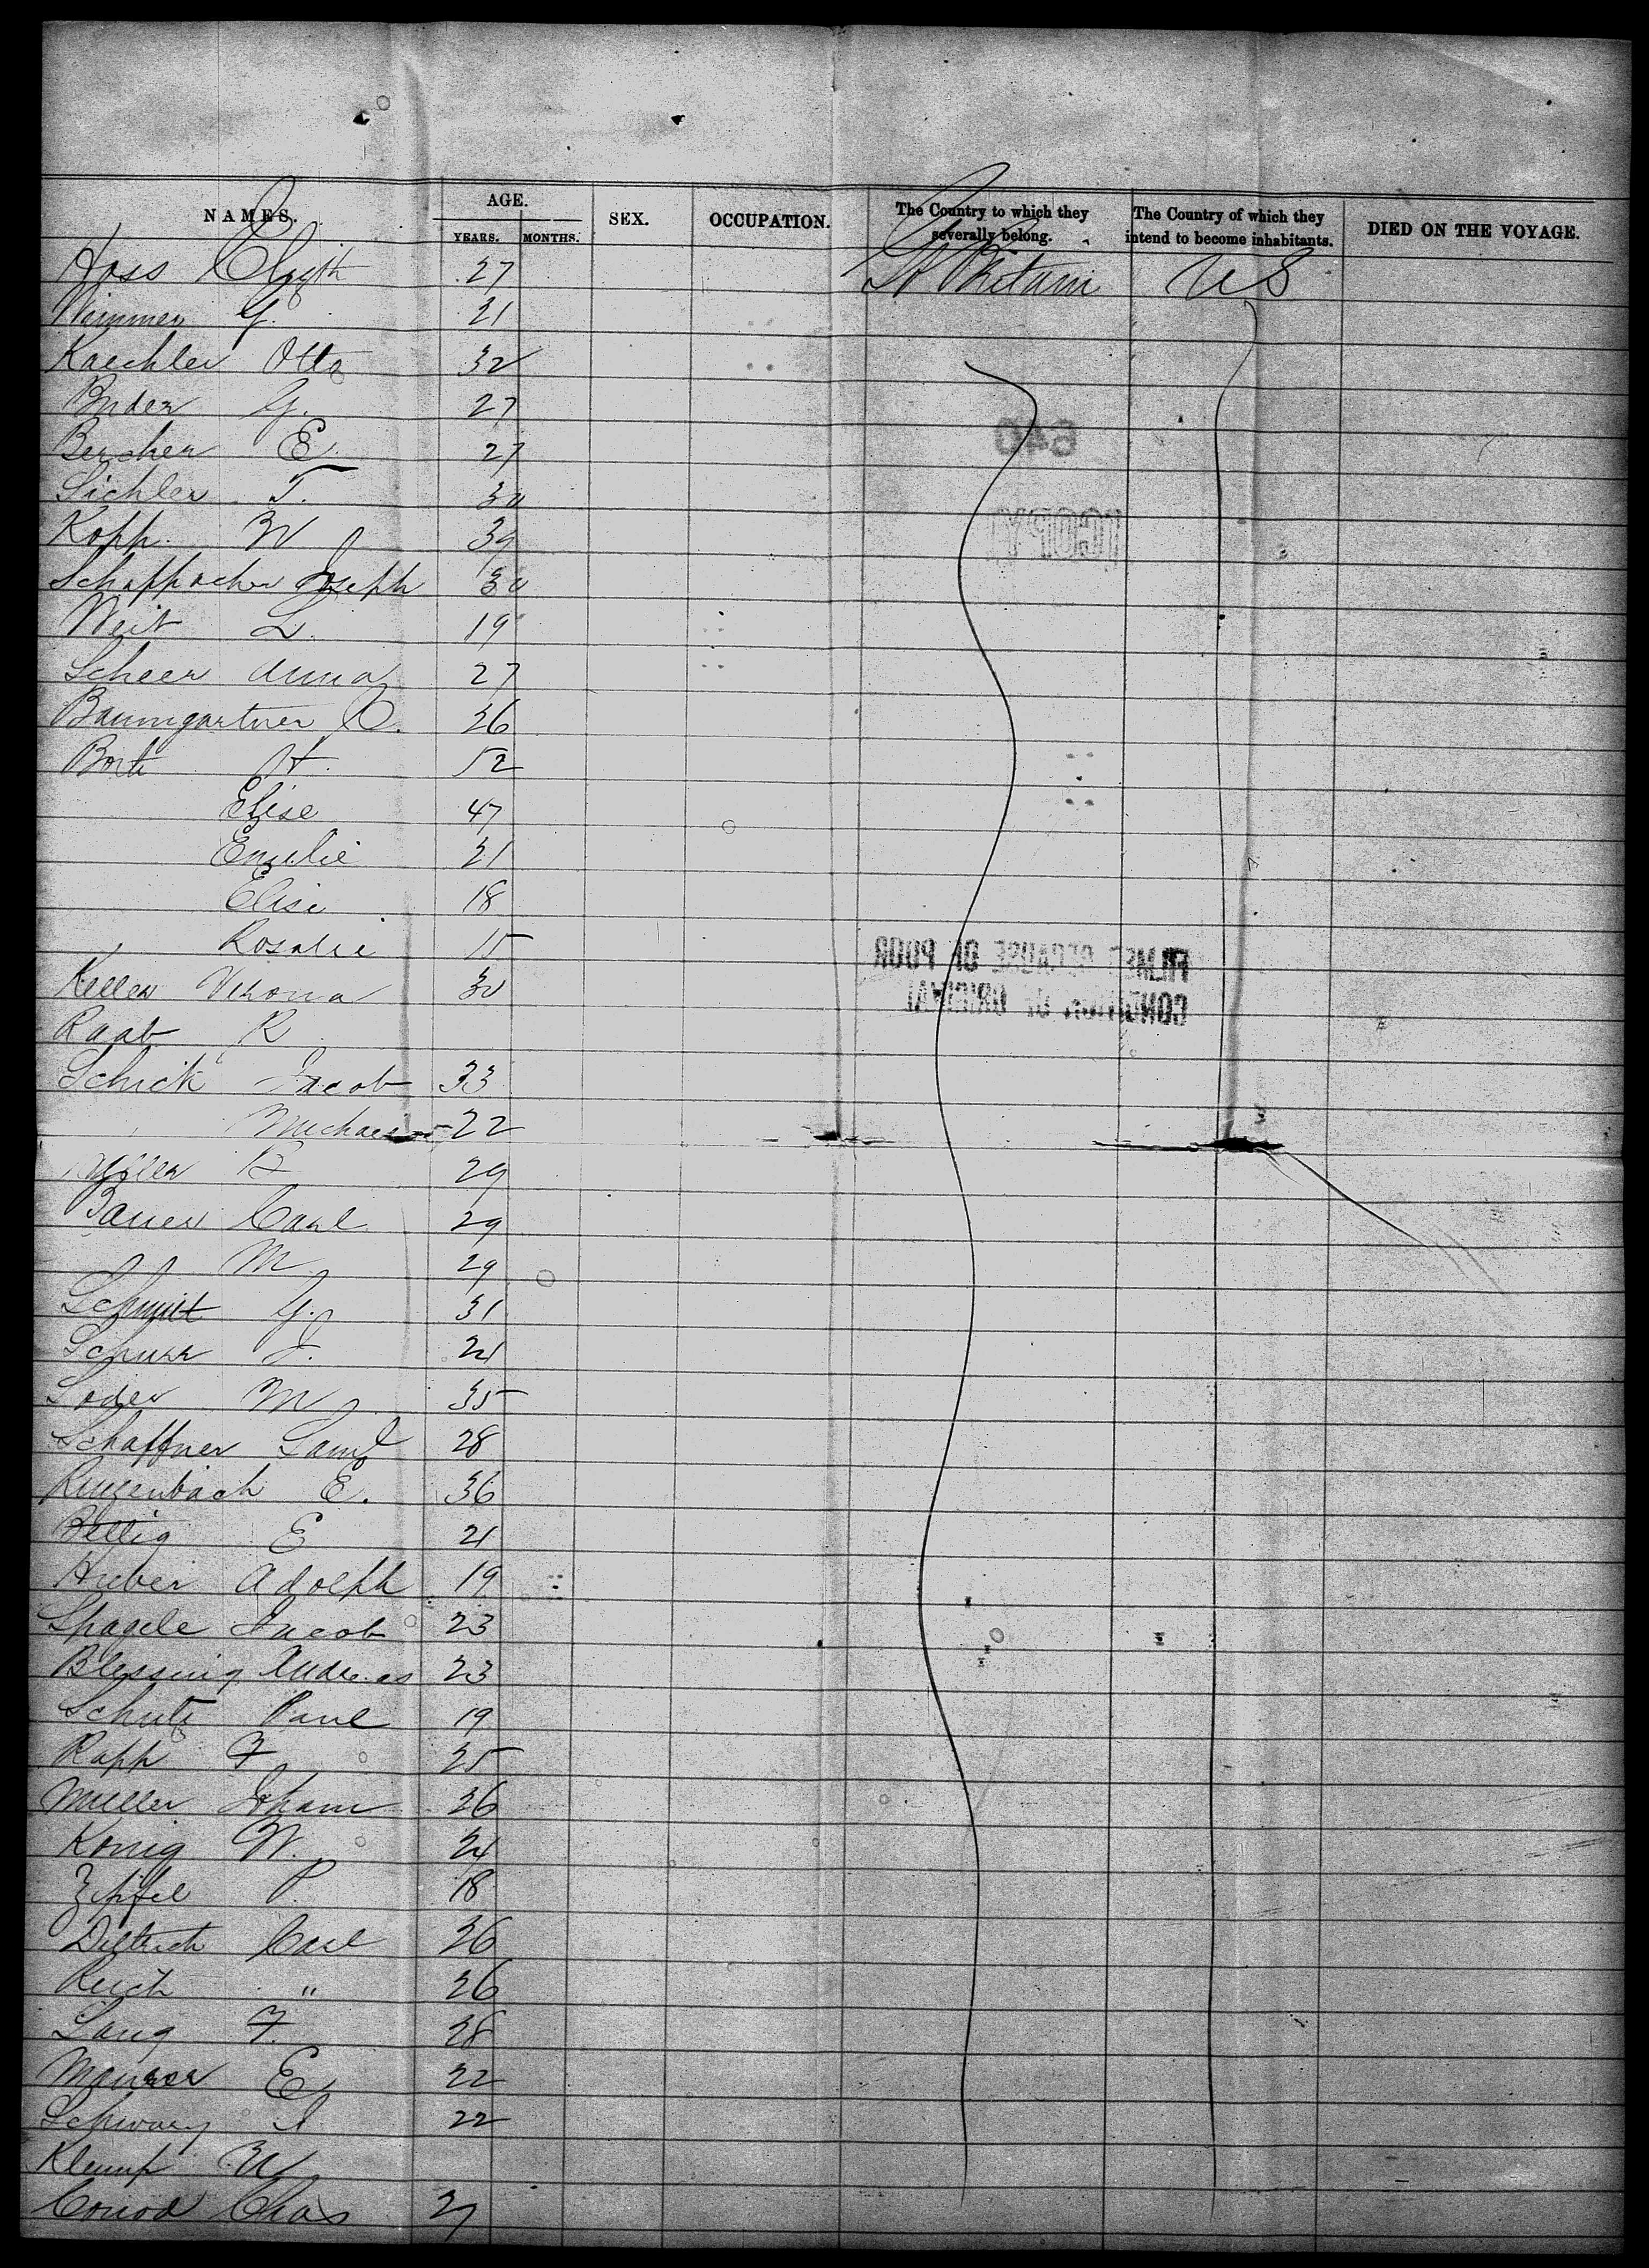 NAMES. AGE. SEX. OCCUPATION. The Country to which they severally belong. The Country of which they intend to become inhabitants. DIED ON THE VOYAGE.
YEARS. MONTHS.
Hass 27 Gt Britain U S
Wimmer G. 21
Kaechler Otto 32
Bruder G. 27
Bercher E. 27
Sichler T. 30
Kopp W 39
Schappacher Joseph 30
Weit L. 19
Scheer Anna 27
640
Baumgartner C. 26
COPY
H. 52
Elise 47
Emilie 21
Elise 18
Rosalie 15
Keller Verona 30
FILMED BECAUSE OF POOR
CONDITION OF ORIGINAL
Raab R
Schick Jacob 33
Michael 22
29
Bauer Carl 29
M 29
Schmit G. 31
Schurr J. 21
Soder M 35
Schaffner Saml 28
Ruggenbach E. 36
Bellig E 21
Huber Adolph 19
Spagele Jacob 23
Blessing Andreas 23
Schutz Paul 19
Rapp F 25
Muller Johann 26
Konig W. 24
Zipfel P. 18
Dietrich Carl 26
Reich " 26
Lang F. 28
Maurer E 22
Schwarz 22
Klumpp W
Conrod Chas 27